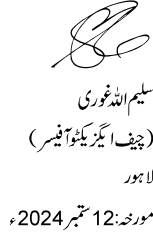 سلیم اللہ غوری
(چیف ایگزیکٹو آفیسر)
لاہور
مورخہ:12 ستمبر 2024ء